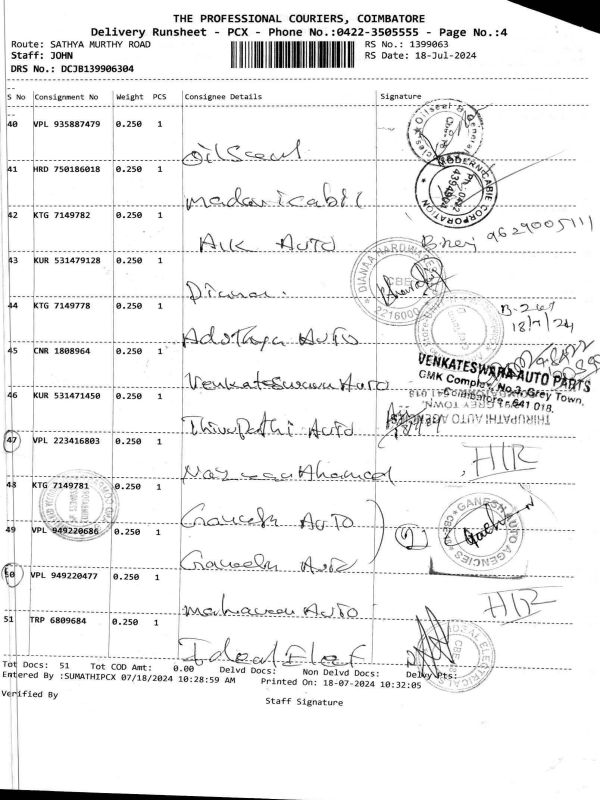 THE PROFESSIONAL COURIERS, COIMBATORE
Delivery Runsheet - PCX - Phone No.:0422-3505555 - Page No.:4
Route: SATHYA MURTHY ROAD RS No.: 1399063
Staff: JOHN RS Date: 18-Jul-2024
DRS No.: DCJB139906304
S No Consignment No Weight PCS Consignee Details Signature
40 VPL 935887479 0.250 1
Oilseal
41 HRD 750186018 0.250 1
MODERN CABIE CORPORATION
42 KTG 7149782 0.250 1
AUTO 9629005111
43 KUR 531479128 0.250 1
DIANAA HARDWARE CBE 2216000
44 KTG 7149778 0.250 1
Adithya Auto
18/7/24
45 CNR 1808964 0.250 1
Venkateswara Auto
VENKATESWARA AUTO PARTS
GMK Complex, No.3, Grey Town,
Coimbatore - 641 018.
46 KUR 531471450 0.250 1
Thirupathi Auto
THIRUPATHI AUTO
47 VPL 223416803 0.250 1
48 KTG 7149781 0.250 1
Ganesh Auto
GANESH AUTO AGENCIES
49 VPL 949220686 0.250 1
Ganesh Auto
50 VPL 949220477 0.250 1
Mahaveer Auto
51 TRP 6809684 0.250 1
Ideal Elec
IDEAL ELECTRICALS
Tot Docs: 51 Tot COD Amt: 0.00 Delvd Docs: Non Delvd Docs: Delvy Pts:
Entered By :SUMATHIPCX 07/18/2024 10:28:59 AM Printed On: 18-07-2024 10:32:05
Verified By
Staff Signature